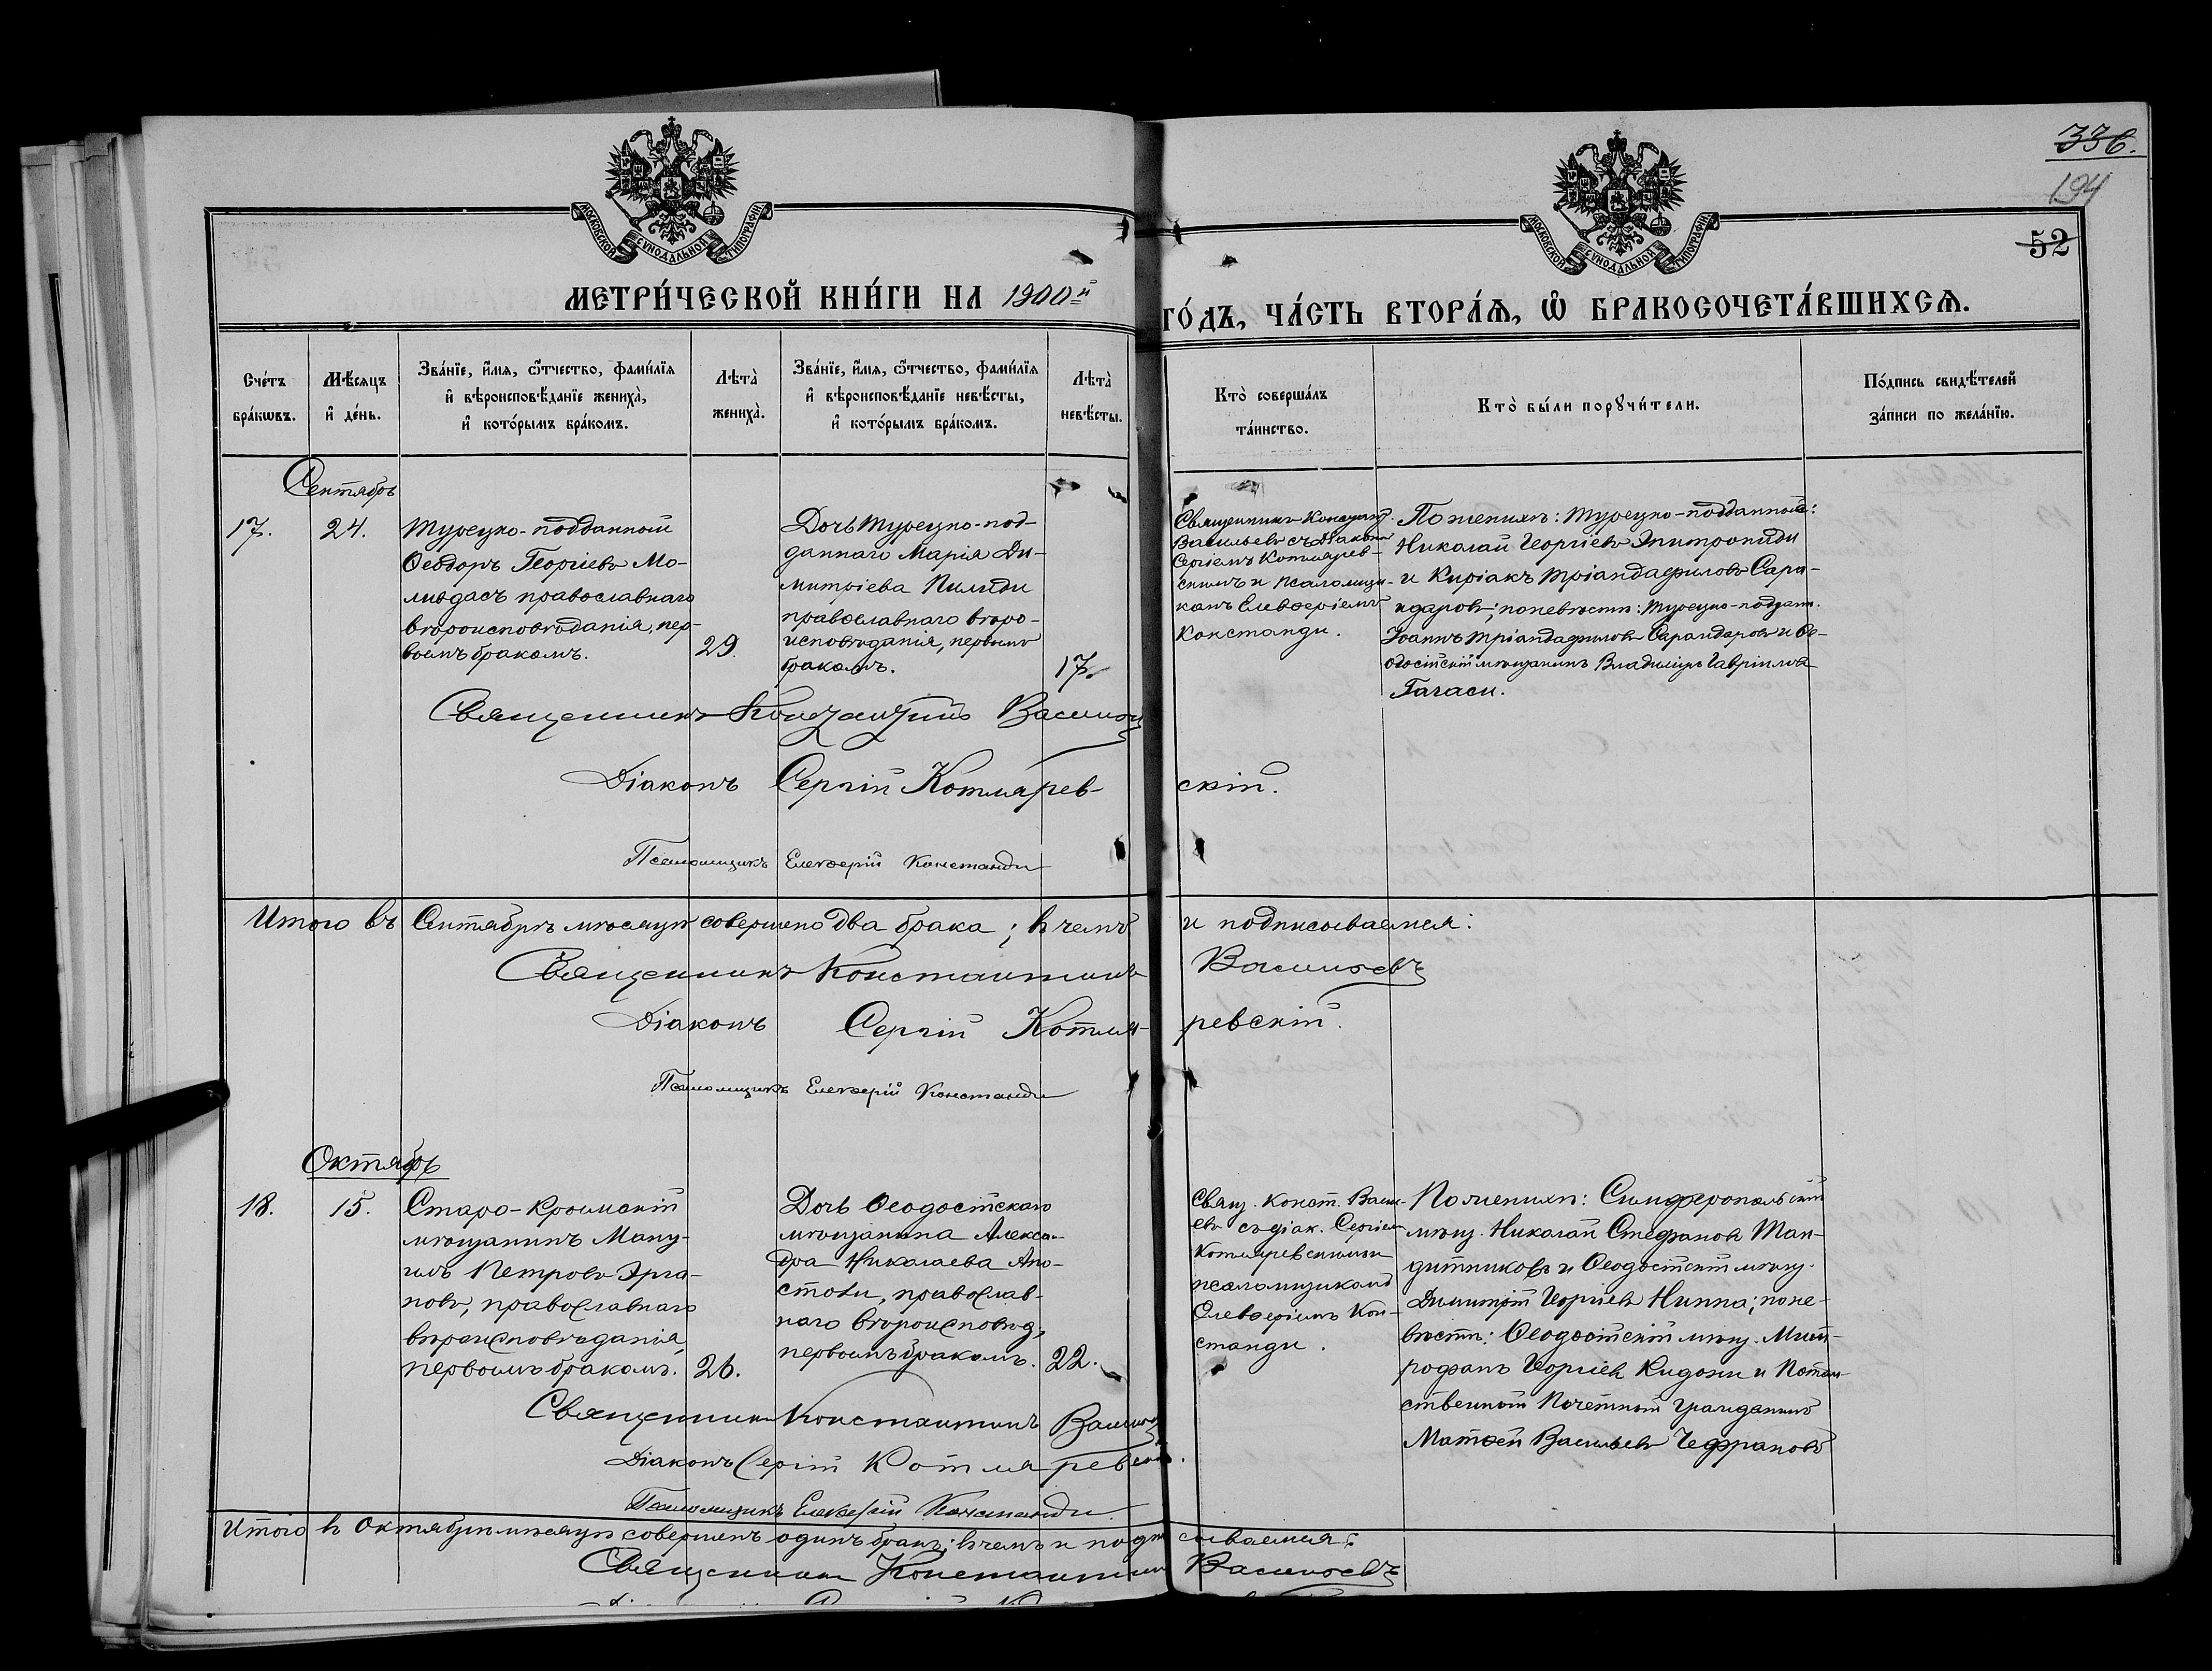 336.
194
52
МОСКОВСКОЙ СѴНОДАЛЬНОЙ ТИПОГРАФІИ
МОСКОВСКОЙ СѴНОДАЛЬНОЙ ТИПОГРАФІИ
МЕТРИ́ЧЕСКОЙ КНИ́ГИ НА 1900й
ГО́ДЪ, ЧА́СТЬ ВТОРА́Ѧ, Ѡ҆ БРАКОСОЧЕТА́ВШИХСѦ.
Сче́тъ
бра́кѡвъ.
Мѣ́сяцъ
и҆ де́нь.
Зва́нїе, и҆́мя, ѻ҆́тчество, фами́лїя
и҆ вѣроисповѣ́данїе жениха̀,
и҆ кото́рымъ бра́комъ.
Лѣта̀
жениха̀.
Зва́нїе, и҆́мя, ѻ҆́тчество, фами́лїя
и҆ вѣроисповѣ́данїе невѣ́сты,
и҆ кото́рымъ бра́комъ.
Лѣта̀
невѣ́сты.
Кто̀ соверша́лъ
та́инство.
Кто̀ бы́ли порꙋчи́тели.
По́дпись свидѣ́телей
за́писи по жела́нїю.
Сентябрь
17.
24.
Турецко-подданный
Ѳеодоръ Георгіевъ Мо-
лиѳдасъ православнаго
вѣроисповѣданія, пер-
вымъ бракомъ.
29.
Дочь турецко-под-
даннаго Марія Ди-
митріева Пилиди
православнаго вѣро-
исповѣданія, первымъ
бракомъ.
17.
Священникъ Констант.
Васильевъ съ діакон.
Сергіемъ Котлярев-
скимъ и псаломщи-
комъ Елевѳеріемъ
Констанди.
По женихѣ: турецко-подданные:
Николай Георгіевъ Эпитропиди
и Киріакъ Тріандафиловъ Сара-
ндаровъ; по невѣстѣ: турецко-поддан.
Іоаннъ Тріандафиловъ Сарандаровъ и Ѳе-
одосійскій мѣщанинъ Владиміръ Гавріиловъ
Гагаси.
Священникъ Константинъ Васильевъ
Діаконъ Сергій Котлярев-
скій.
Псаломщикъ Елевѳерій Констанди
Итого въ Сентябрѣ мѣсяцѣ совершено два брака; въ чемъ и подписываемся:
Священникъ Константинъ Васильевъ
Діаконъ Сергій Котля-
ревскій.
Псаломщикъ Елевѳерій Констанди
Октябрь
18.
15.
Старо-Крымскій
мѣщанинъ Ману-
илъ Петровъ Эрга-
новъ, православнаго
вѣроисповѣданія,
первымъ бракомъ.
26.
Дочь Ѳеодосійскаго
мѣщанина Алексан-
дра Николаева Апо-
столи, православ-
наго вѣроисповѣд,
первымъ бракомъ.
22.
Свящ. Конст. Василь-
евъ съ діак. Сергіем
Котляревскимъ и
псаломщикомъ
Елевѳеріемъ Кон-
станди.
По женихѣ: Симферопольскій
мѣщ. Николай Стефановъ Ман-
дитниковъ и Ѳеодосійскій мѣщ.
Димитрій Георгіевъ Нинпа; по не-
вѣстѣ: Ѳеодосійскій мѣщ. Мит-
рофанъ Георгіевъ Кидони и Потом-
ственный Почетный Гражданинъ
Матѳей Васильевъ Чефрановъ
Священникъ Константинъ Васильевъ
Діаконъ Сергій Котляревскій.
Псаломщикъ Елевѳерій Констанди.
Итого въ Октябрѣ мѣсяцѣ совершенъ одинъ бракъ; въ чемъ и подписываемся:
Священникъ Константинъ Васильевъ